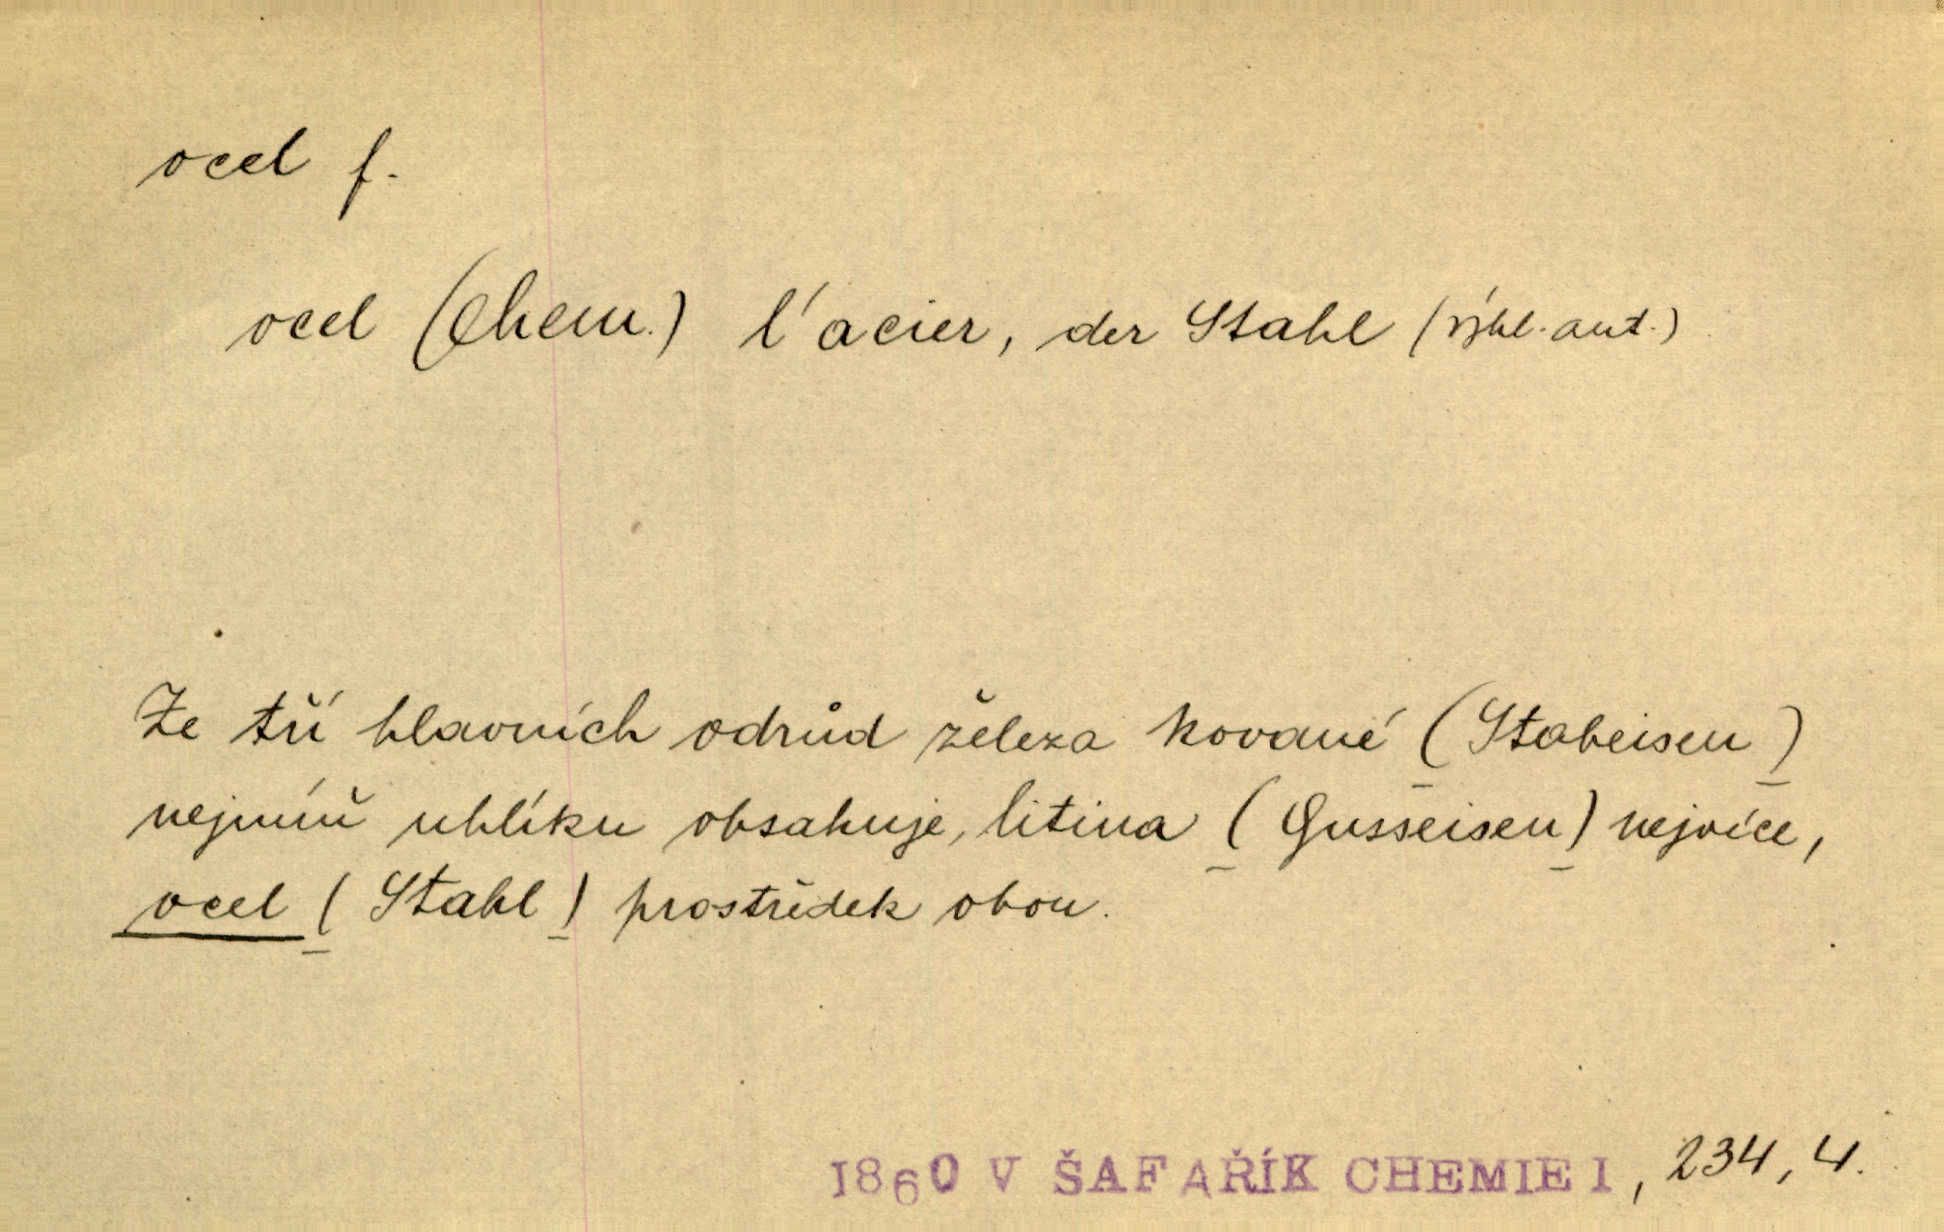 ocel f.
ocel (Chem.) l'acier, der Stahl (výkl. aut.)
Ze tří hlavních odrůd železa kované (Stabeisen)
nejmíň uhlíku obsahuje, litina (Gusseisen) nejvíce,
ocel (Stahl) prostředek obou.
1860 V ŠAFAŘÍK CHEMIE I, 234, 4.